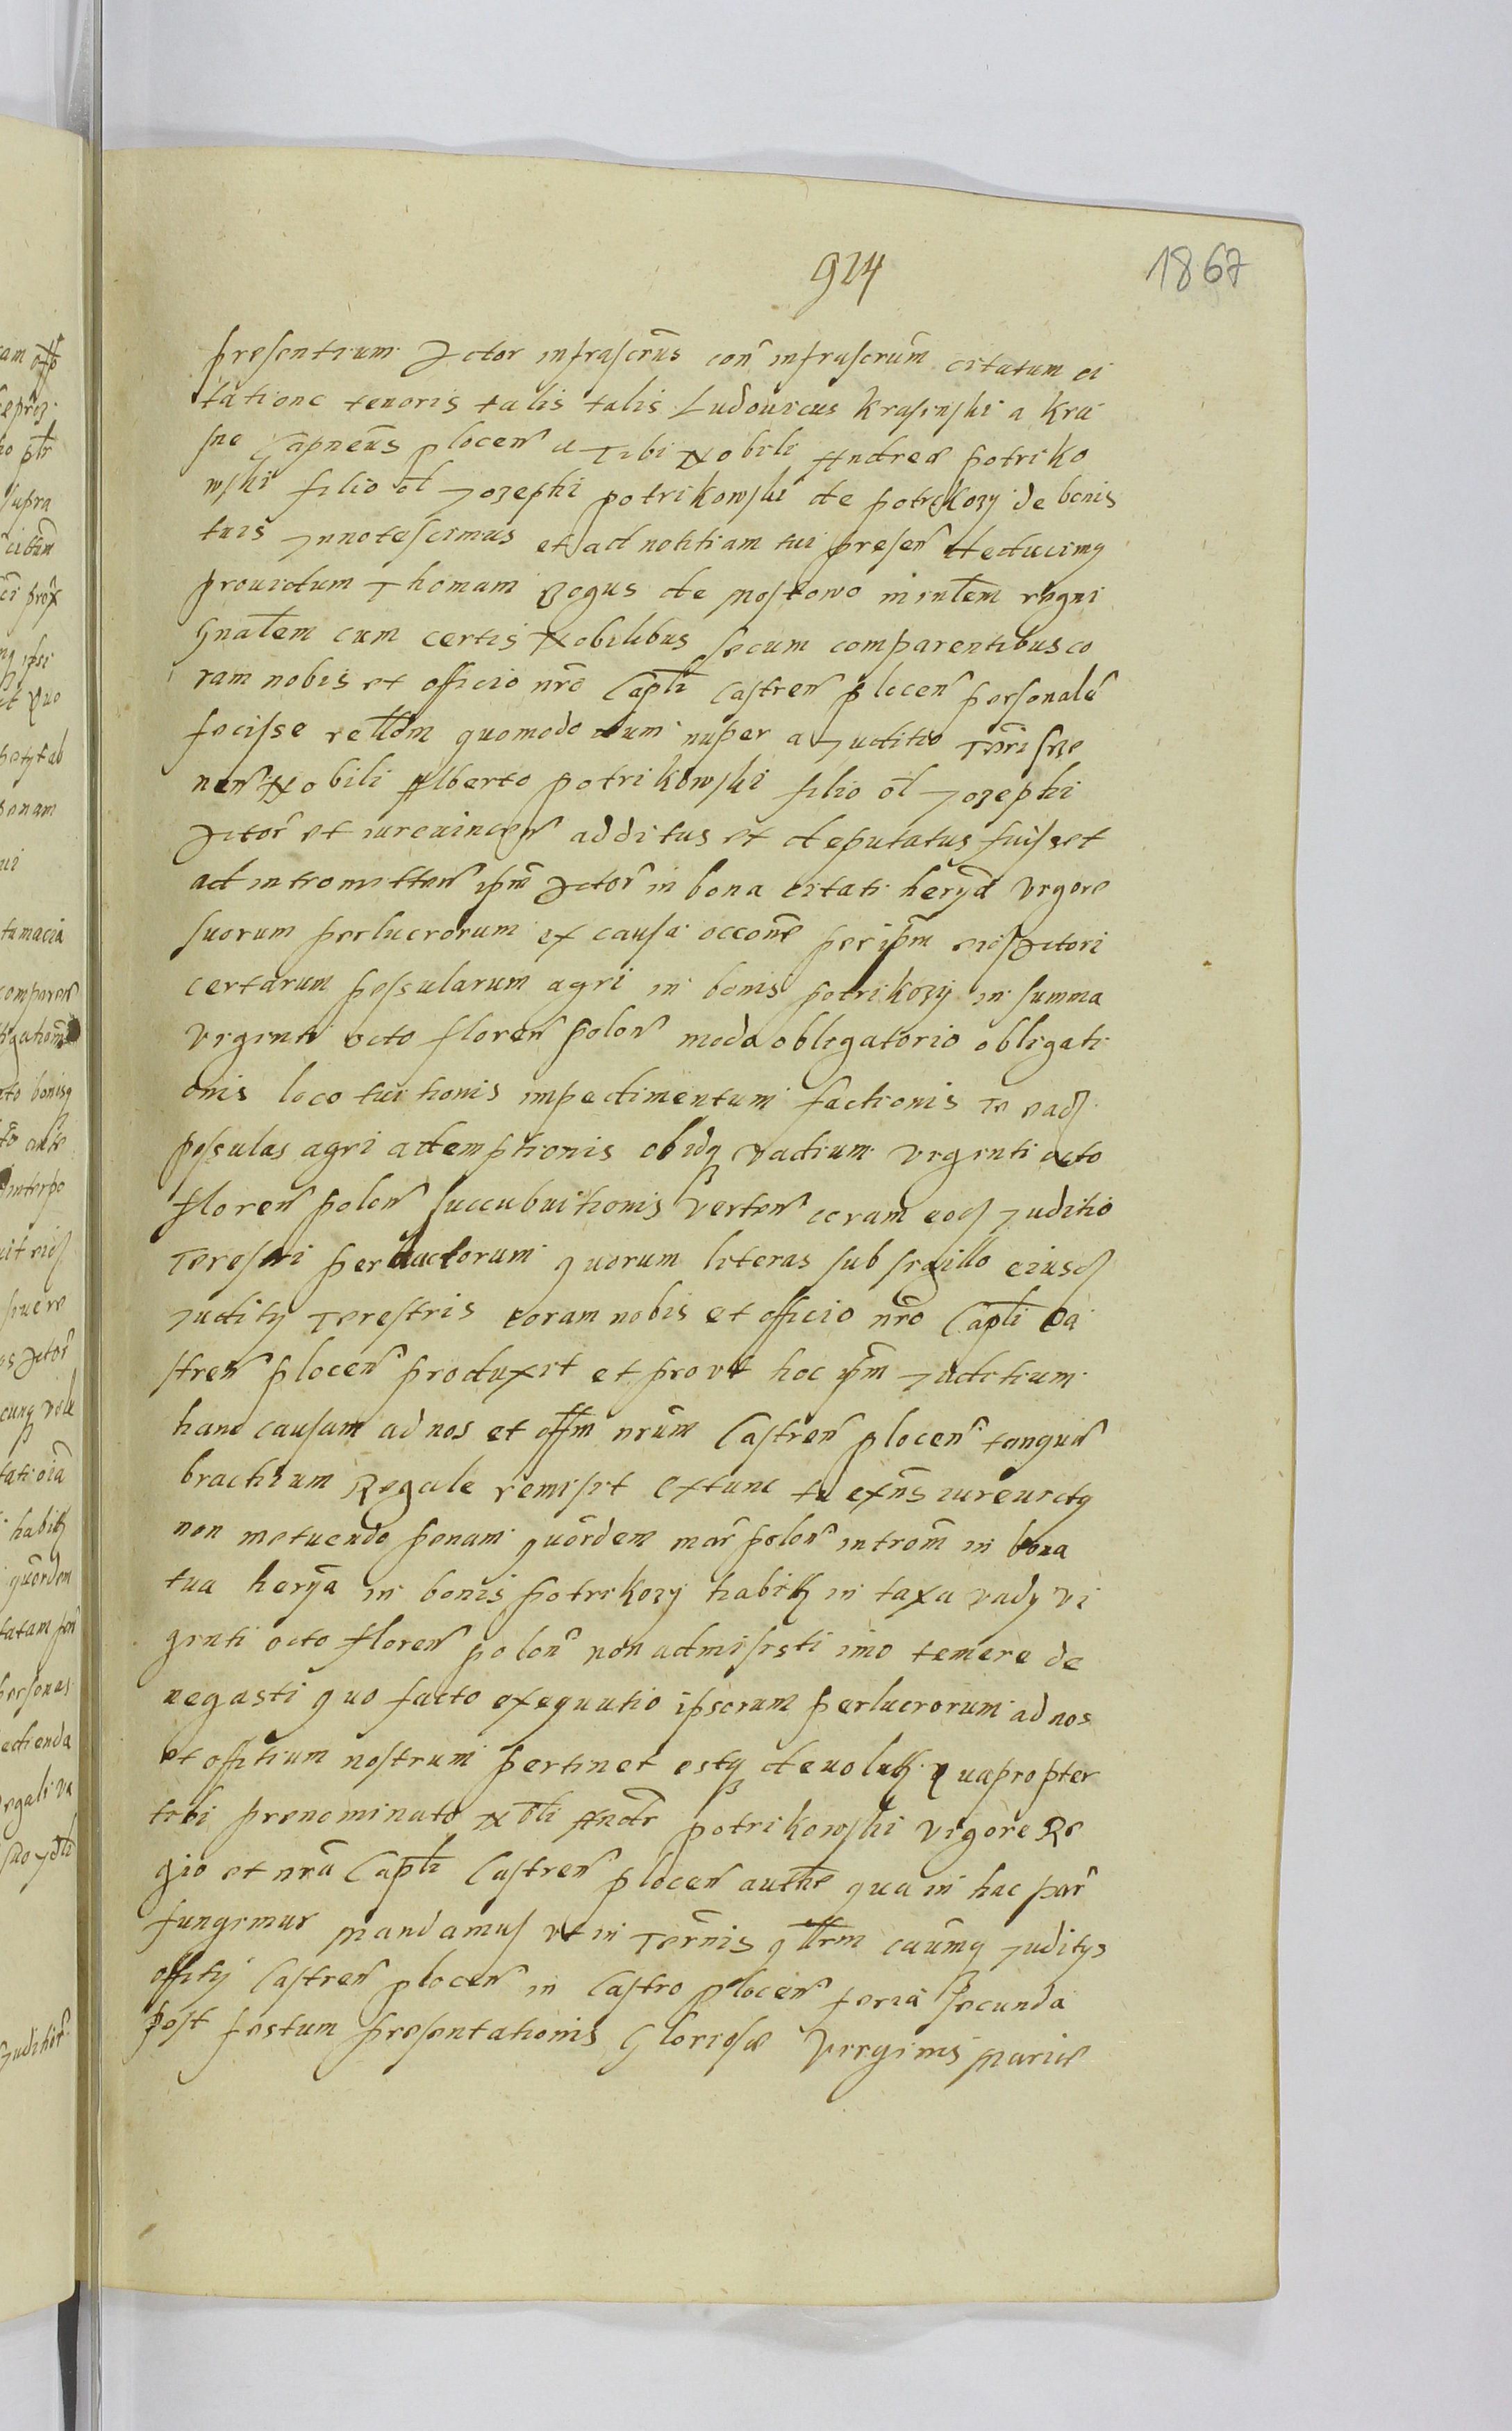 924
1867
presentium Actor infrascrũs con̄ infrascrũm citatum ci
tatione tenoris talis talis Ludouicus Krasinski a Kra
sne Capneũs plocen̄ &c Tibi Nobili Andreæ potriko
wski filio ol̄ Jozephi potrikowski de potrikozy de bonis
tuis Innotescimus et ad notitiam tui presen̄ deducimꝯ
prouidum Thomam Bogus de Mostowo ministe̅m regni
Gnal̄em cum certis Nobilibus secum comparentibus co
ram nobis et officio nr̄o Capl̄i Castren̄ plocen̄ personal̄r
fecisse rel̄lōm quomodo dum nuper a Juditio Ter̄ri sre
nen̄ Nobili Alberto potrikowski filio ol̄ Jozephi
Actor̄ et iureuincen̄ additus et deputatus fuisset
ad intromitten̄ ip̄m Actor̄ in bona citati heryd̄ vigore
suorum perlucrorum ex causa occōne per ip̄m eid̄ Actori
certarum pessularum agri in bonis potrikozy in summa
viginti octo floren̄ polon̄ modo obligatorio obligati
onis loco tuitionis impedimentum factionis Te ead̄
pessulas agri ademptionis obidqꝫ vadium viginti octo
floren̄ polon̄ succubuitionis verten̄ coram eod̄ Juditio
Terestri perlucrorum quorum literas sub sigillo eiusd̄
Juditÿ Terestris coram nobis et officio nr̄o Capl̄i Ca
stren̄ plocen̄ produxit et prout hoc ip̄m Juditium
hanc causam ad nos et off̄m nr̄um Castren̄ plocen̄ tanquā
brachium Regale remisit extunc tu exn̄s iureuictꝯ
non metuendo penam quōrdem mar̄ polon̄ introm̄ in bona
tua heryā in bonis potrikozy habitꝫ in taxa vadÿ vi
ginti octo floren̄ polon̄ non admisisti imo temere de
negasti quo facto exequutio ipsorum perlucrorum ad nos
et offitium nostrum pertinet estqꝫ deuolutꝫ quapropter
tibi prenominato Nōbli Andr̄ potrikowski vigore Re
gio et nr̄a Capl̄i Castren̄ plocen̄ auth̄e qua in hac par̄
fungimur Mandamus vt in Ter̄nis qll̄rm caūmqꝫ Juditÿs
offitÿ Castren̄ plocen̄ in Castro plocen̄ feria Secunda
post festum presentationis Gloriosæ Virginis Mariæ